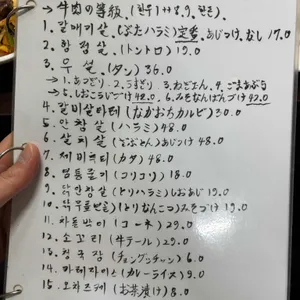 → 牛肉の等級. (한우) 1++ 8.9. 한돈.
1. 갈매기살 (ぶたハラミ) 定番. あじつけ. なし 17.0
2. 항정살 (トントロ) 19.0
3. 우설. (タン) 36.0
→ 1. あつぎり. 2. うすぎり 3. ねぎタン. 4. ごまあぶら
5. しおこうじづけ 42.0. 6. みそなんばんづけ 42.0
4. 갈비살마레 (なかおちカルビ) 30.0
5. 안창살 (ハラミ) 48.0
6. 살치살 あじつけ 48.0
7. (カタ) 48.0
8. (コリコリ) 18.0
9. 닭안창살 (とりハラミ) しおあじ 19.0
10. 닭무릎연골 (とりなんこつ) みそづけ 19.0
11. 차돌박이 (コーネ) 29.0
12. 소꼬리 (牛テール) 29.0
13. 청국장 (チョングッチャン) 6.0
14. 카레라이스 (カレーライス) 9.0
15. 오차즈케 (お茶漬け) 8.0